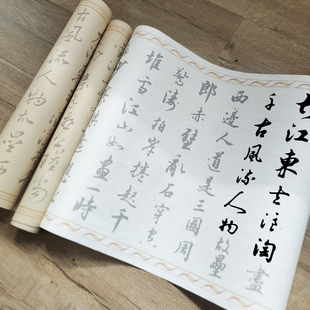 大江東去浪淘盡
千古風流人物故壘
西邊人道是三國周
郎赤壁亂石穿空
驚濤拍岸捲起千
堆雪江山如畫一時
古風流人物故壘西